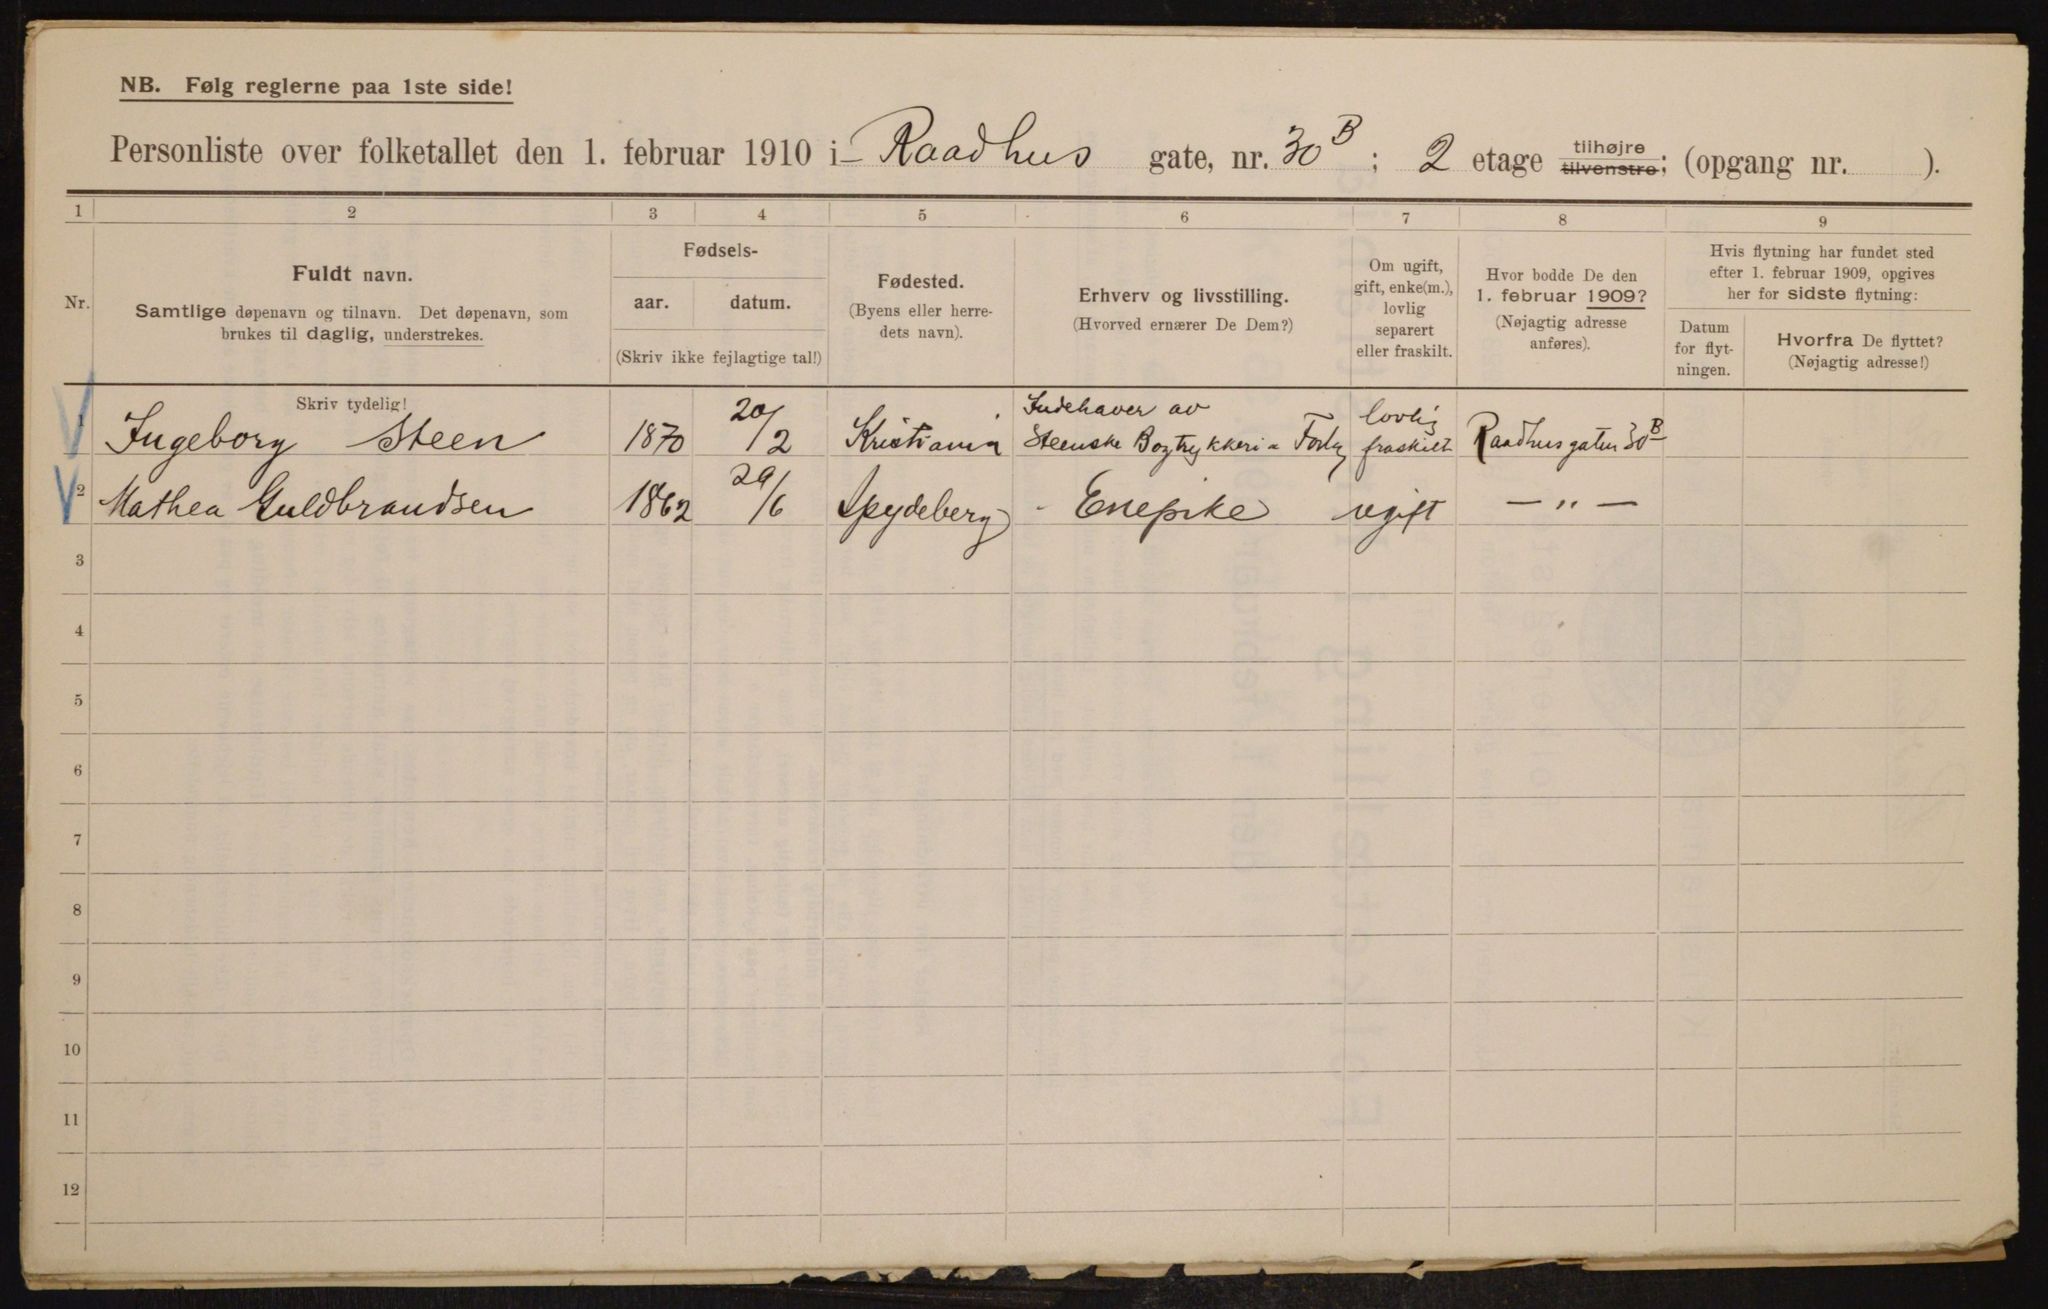 NB. Følg reglerne paa 1ste side!
Personliste over folketallet den 1. februar 1910 i Raadhus gate, nr. 30 B ; 2 etage tilhøjre tilvenstre; (opgang nr. ).
1 2 3 4 5 6 7 8 9
Nr.
Fuldt navn.
Samtlige døpenavn og tilnavn. Det døpenavn, som
brukes til daglig, understrekes.
Skriv tydelig!
Fødsels-
aar. datum.
(Skriv ikke fejlagtige tal!)
Fødested.
(Byens eller herre-
dets navn).
Erhverv og livsstilling.
(Hvorved ernærer De Dem?)
Om ugift,
gift, enke(m.),
lovlig
separert
eller fraskilt.
Hvor bodde De den
1. februar 1909?
(Nøjagtig adresse
anføres).
Hvis flytning har fundet sted
efter 1. februar 1909, opgives
her for sidste flytning:
Datum
for flyt-
ningen.
Hvorfra De flyttet?
(Nøjagtig adresse!)
1 Ingeborg Steen 1870 20/2 Kristiania Indehaver av Steenske Bogtrykkeri lovlig fraskilt Raadhusgaten 30 B
2 Mathea Guldbrandsen 1862 29/6 Spydeberg Enepike ugift — " —
3
4
5
6
7
8
9
10
11
12